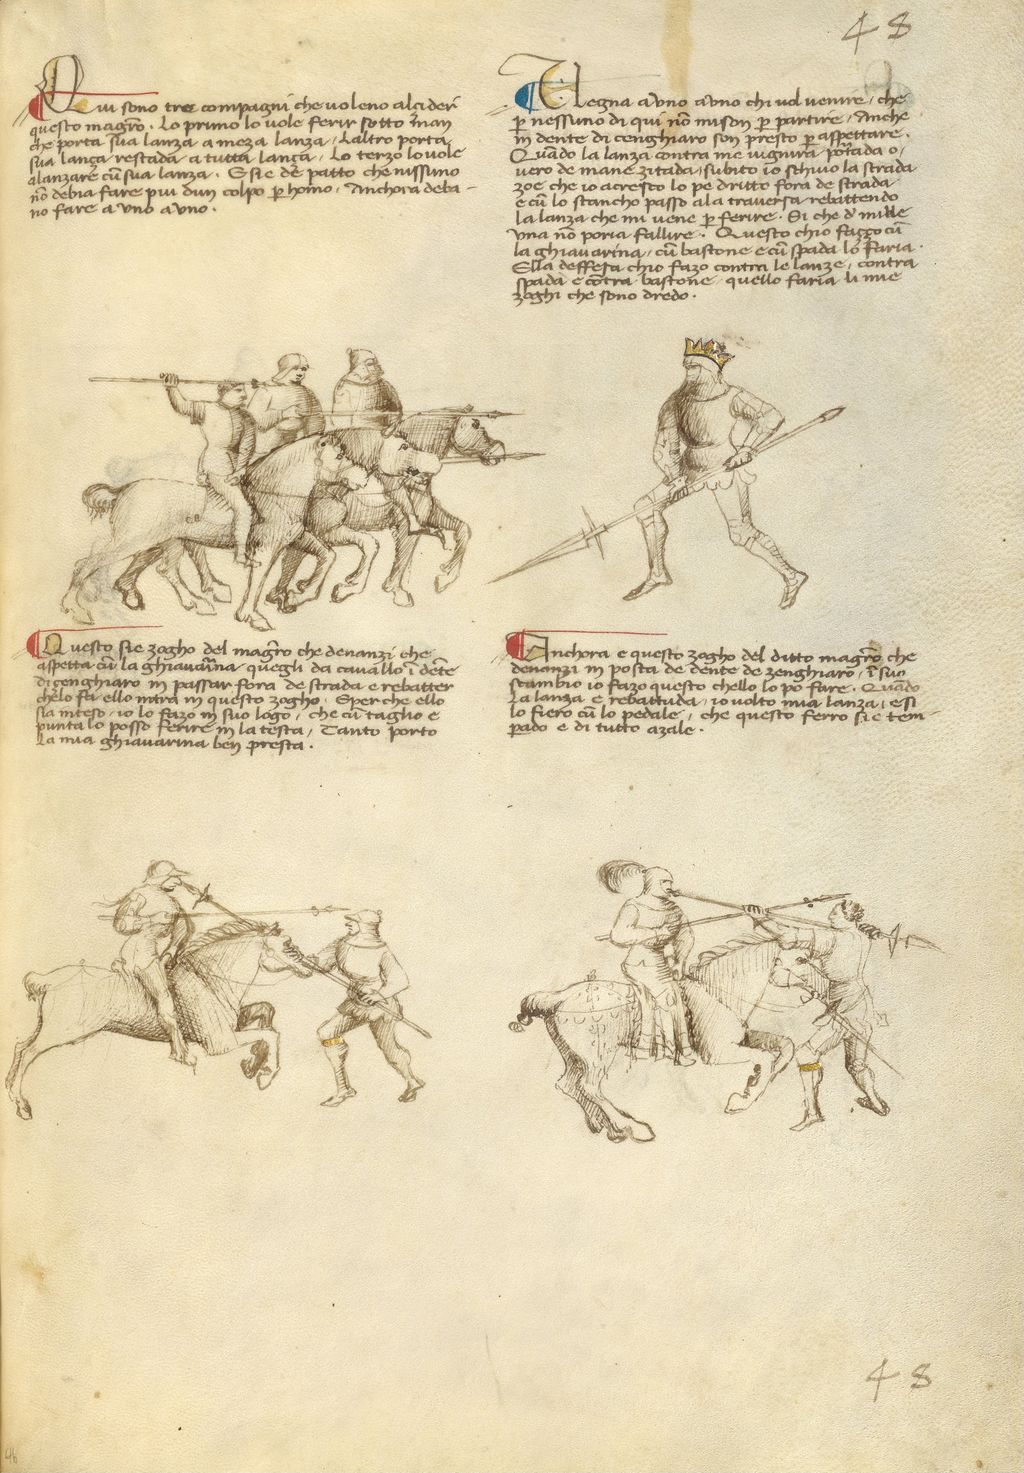 48
Qui sono tre compagni che voleno alcider
questo magro. Lo primo lo vole ferir sotto man
che porta sua lanza a meza lanza, Laltro porta
sua lança restada a tutta lança, Lo terzo lo vole
alanzare cū sua lanza. Si è dè patto che nissuno
nō debia fare piu dun colpo p homo, Anchora deba-
no fare a uno a uno.
Vegna a uno a uno chi vol venire, che
p nessuno di qui nō mison p partire, Anche
in dente di cenghiaro son presto p aspettare.
Quādo la lanza contra me vignirà portada o,
vero de mane zitada, subito io schivo la strada
zoe che io acresco lo pe dritto fora de strada
e cū lo stancho passo ala traversa rebattendo
la lanza che mi vene p ferire. Si che d' mille
una nō poria fallire. Questo chio fazzo cū
la ghiavarina, cū bastone e cū spada lo faria.
Ella deffesa chio fazo contra le lanze, contra
spada e cōtra bastone, quello faria li mie
zoghi che sono dredo.
Questo sie zogho del magro che denanzi che
aspetta cū la ghiavarina quegli da cavallo ī dēte
di cenghiaro in passar fora de strada e rebatter
chelo fa ello intra in questo zogho. Sper che ello
sia inteso, io lo fazo in suo logo, che cū taglio e
punta lo posso ferire in la testa, Tanto porto
la mia ghiavarina ben presta.
Anchora e questo zogho del ditto magro che
denanzi in posta de dente de zenghiaro, ī suo
scambio io fazo questo chello lo po fare. Quādo
la lanza e rebattuda, io volto mia lanza, e si
lo fiero cū lo pedale, che questo ferro sie tem-
perado e di tutto azale.
48
46